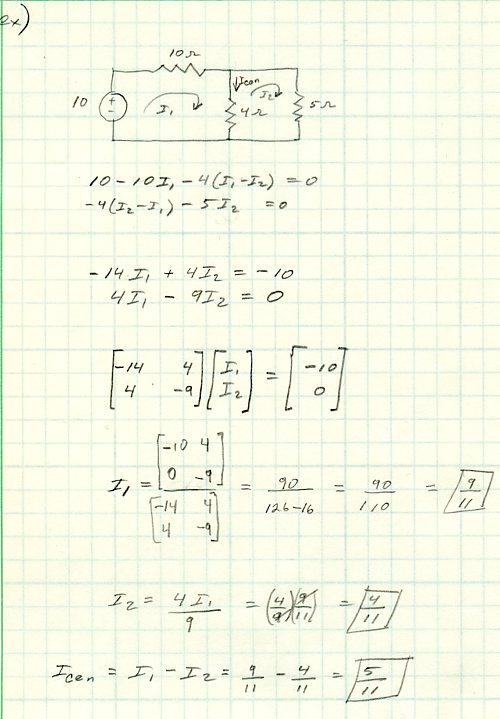 ex)
10Ω
10 + - I₁ Icen I₂ 4Ω 5Ω
10 - 10I₁ - 4(I₁-I₂) = 0
-4(I₂-I₁) - 5I₂ = 0
-14I₁ + 4I₂ = -10
4I₁ - 9I₂ = 0
[-14 4; 4 -9] [I₁; I₂] = [-10; 0]
I₁ = [-10 4; 0 -9] / [-14 4; 4 -9] = 90/(126-16) = 90/110 = 9/11
I₂ = 4I₁/9 = (4/9)(9/11) = 4/11
Icen = I₁ - I₂ = 9/11 - 4/11 = 5/11